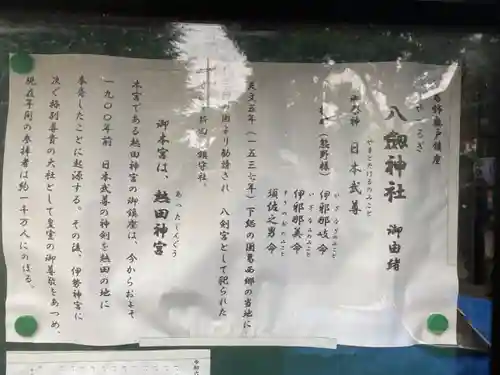 鎮座
やつるぎ
八劔神社 御由緒
やまとたけるのみこと
御祭神 日本武尊
いざなぎのみこと
(熊野様) 伊邪那岐命
いざなみのみこと
伊邪那美命
すさのおのみこと
須佐之男命
天文五年(一五三七年)下総の国葛西郷の当地に
国より勧請され 八剣宮として祀られた
鎮守社。
あつたじんぐう
御本宮は、熱田神宮
本宮である熱田神宮の御鎮座は、今からおよそ
一九〇〇年前 日本武尊の神剣を熱田の地に
奉斎したことに起源する。その後、伊勢神宮に
次ぐ格別尊貴の大社として皇室の御尊敬をあつめ、
現在年間の参拝者は約一千万人にのぼる。